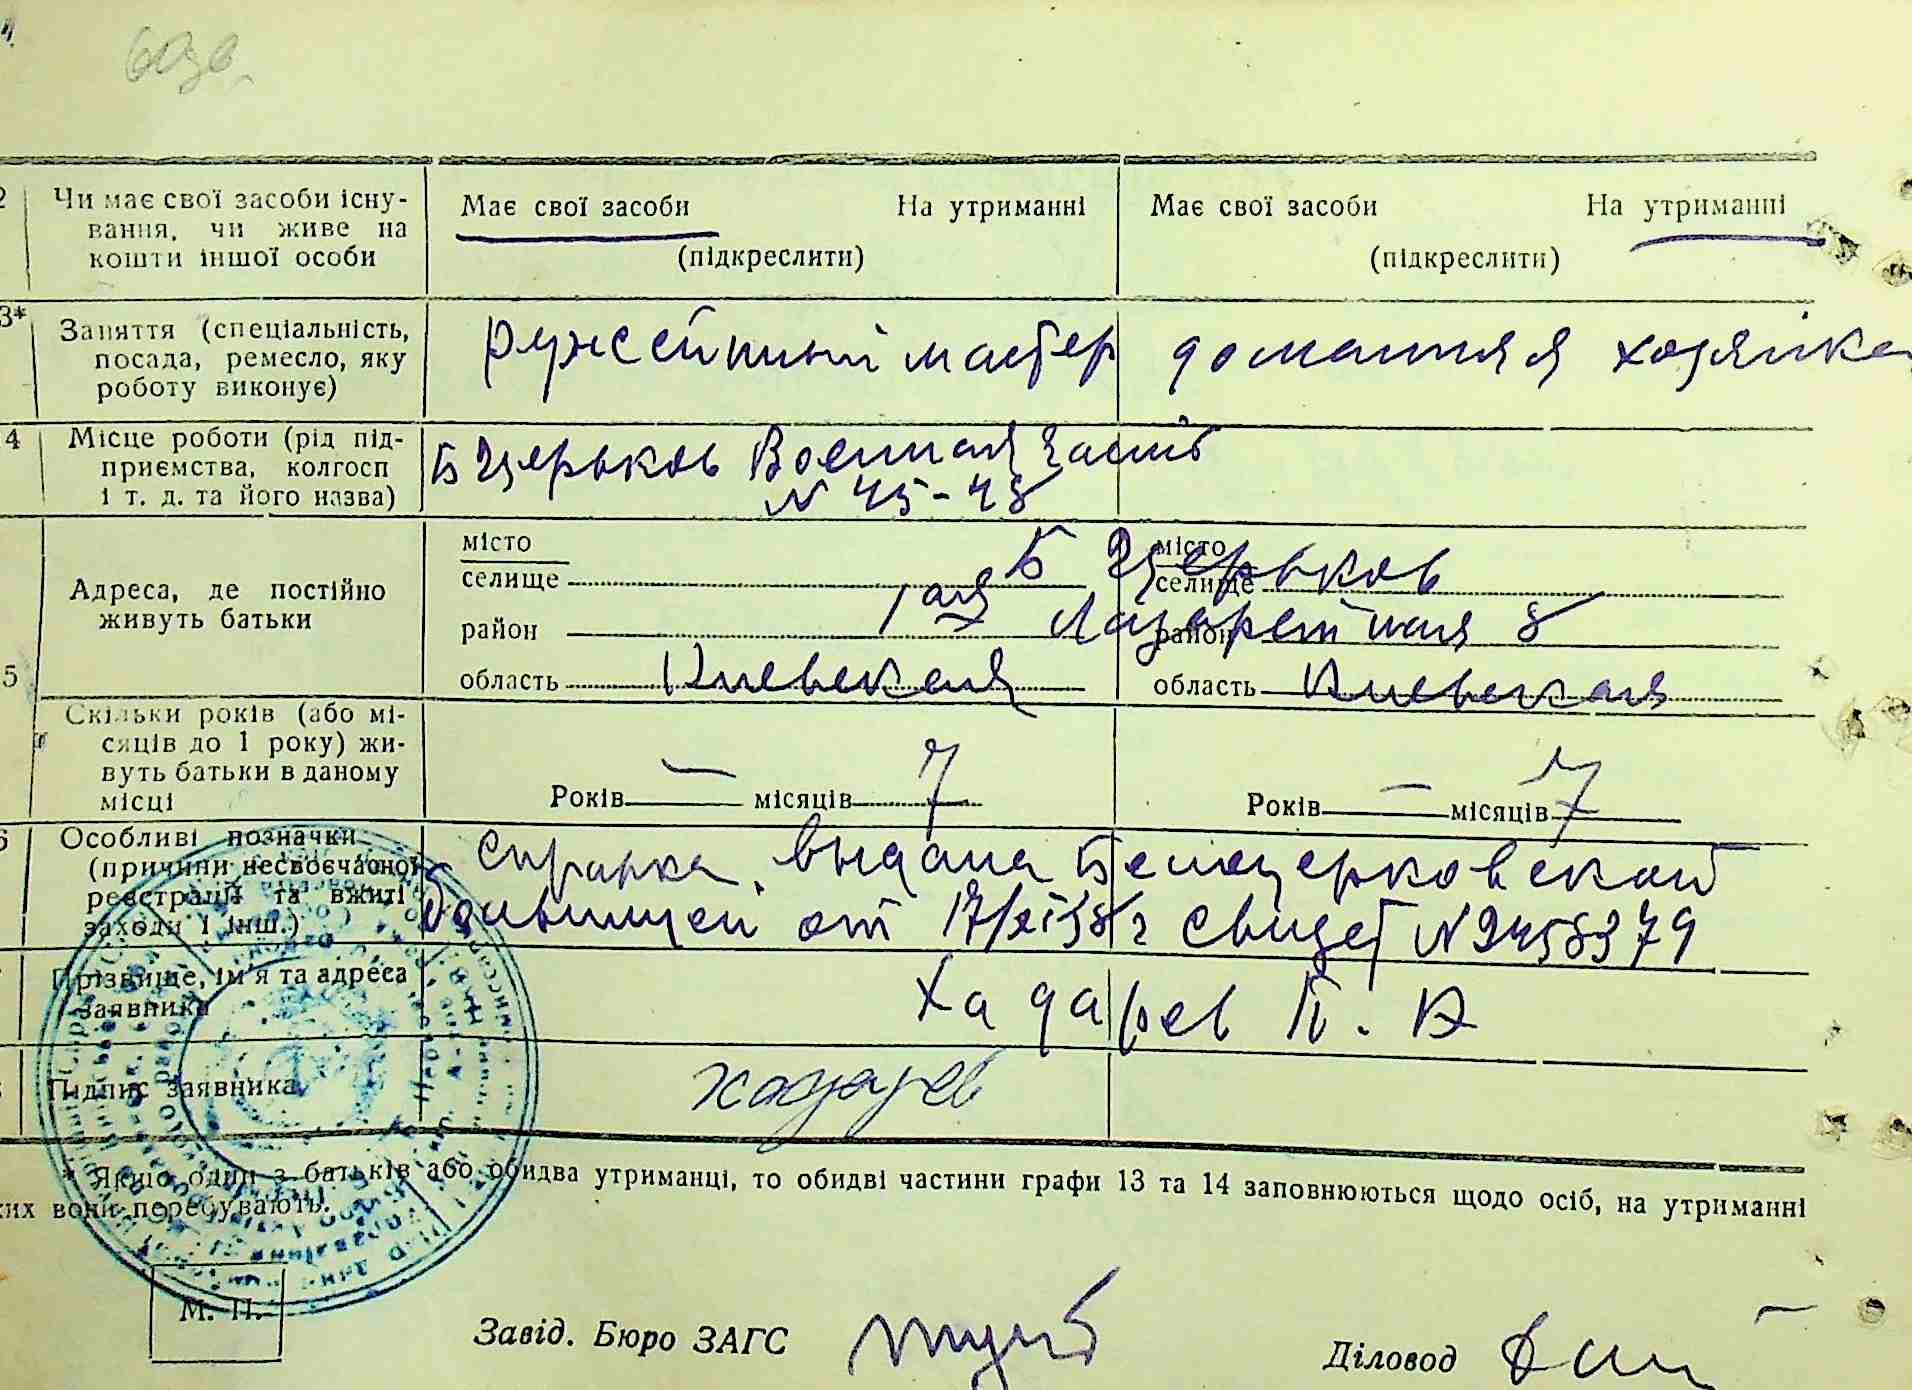 2 Чи має свої засоби існу-
вання, чи живе на
кошти іншої особи
Має свої засоби На утриманні
(підкреслити)
Має свої засоби На утриманні
(підкреслити)
3* Заняття (спеціальність,
посада, ремесло, яку
роботу виконує)
ружейный мастер
домашняя хозяйка
4 Місце роботи (рід під-
приємства, колгосп
і т. д. та його назва)
Б Церьковь Военная часть
N 45-48
5 Адреса, де постійно
живуть батьки
місто
селище
район
область Киевская
місто
селище
район
область Киевская
Б Церьковь
1ая Лазаретная 8
Скільки років (або мі-
сяців до 1 року) жи-
вуть батьки в даному
місці
Років — місяців 7
Років — місяців 7
6 Особливі позначки
(причини несвоєчасної
реєстрації та вжиті
заходи і інш.)
справка выдана Белоцерковской
больницей от 17/XI 38 г Свидет N 2458379
Прізвище, ім'я та адреса
заявника
Хадарев П. А
Підпис заявника
Хадарев
* Якщо один з батьків або обидва утриманці, то обидві частини графи 13 та 14 заповнюються щодо осіб, на утриманні
ких вони перебувають.
М. П.
Завід. Бюро ЗАГС
Діловод